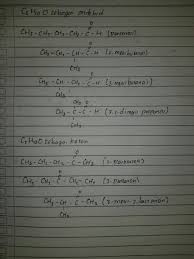 C5H10O sebagai aldehid
O
CH3-CH2-CH2-CH2-C-H (pentanal)
O
CH3-CH2-CH-C-H (2-metilbutanal)
CH3
O
CH3-CH-CH2-C-H (3-metilbutanal)
CH3
CH3 O
CH3-C-C-H (2,2-dimetil propanal)
CH3
C5H10O sebagai keton
O
CH3-CH2-CH2-C-CH3 (2-pentanon)
O
CH3-CH2-C-CH2-CH3 (3-pentanon)
O
CH3-CH-C-CH3 (3-metil-2-butanon)
CH3